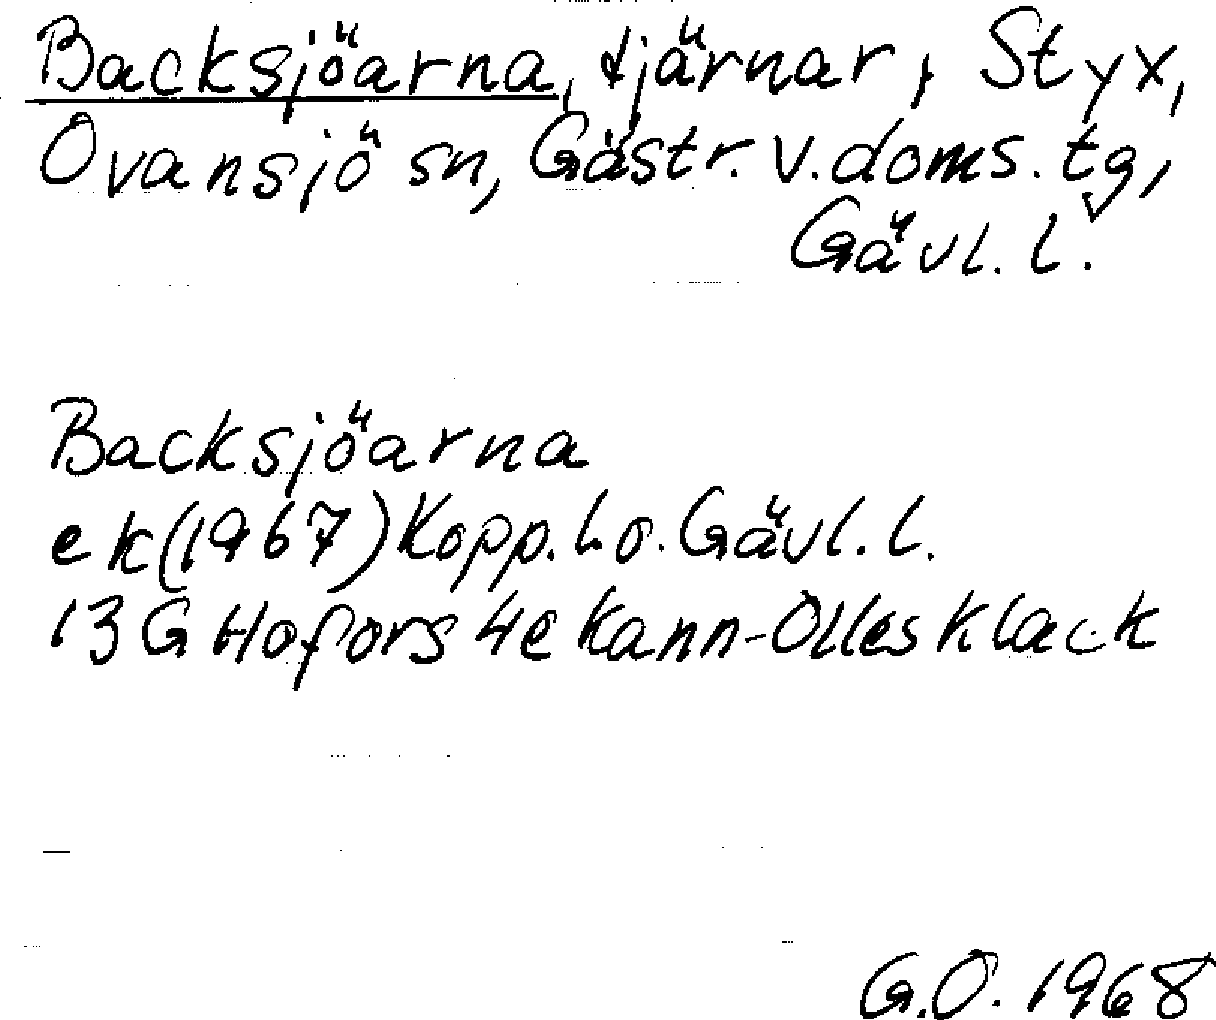 Backsjöarna, tjärnar, Styx,
Ovansjö sn, Gästr. v. doms. tg,
Gävl. l.
Backsjöarna
ek (1967) Kopp. l. o. Gävl. l.
13 G Hofors 4e Kann-Olles Klack
G.O. 1968